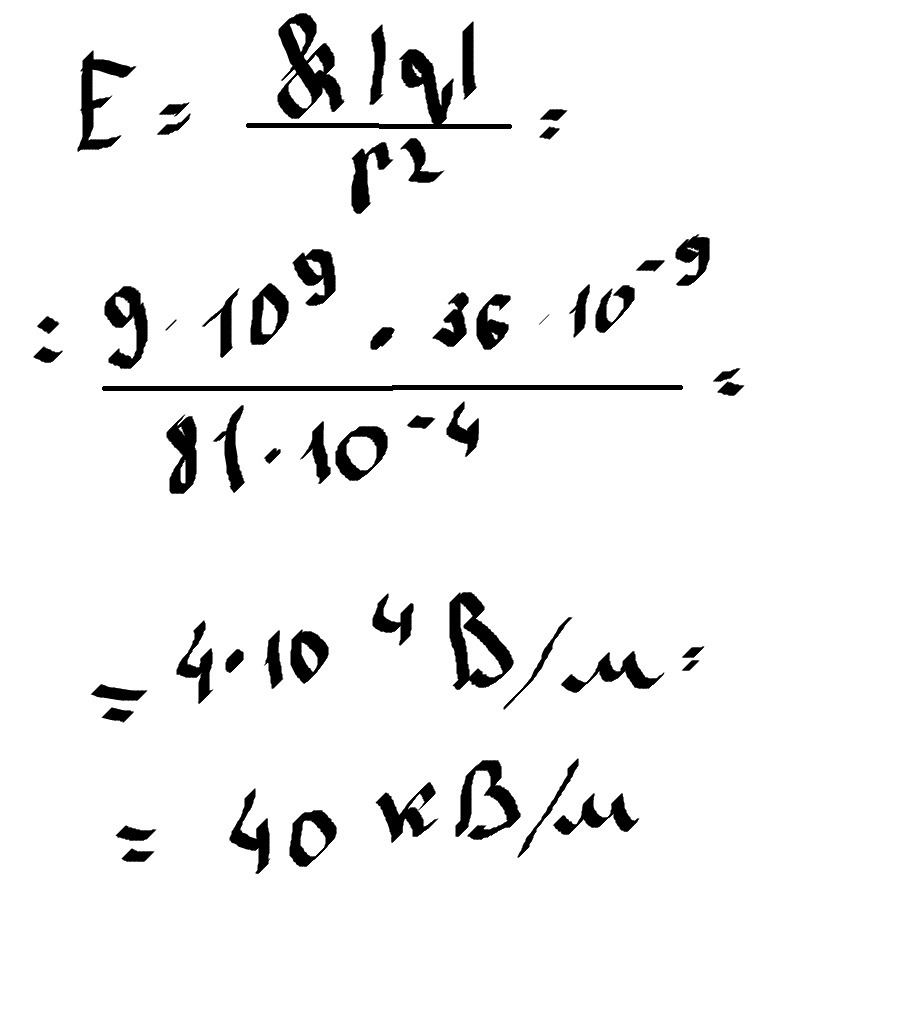 E = k|q| / r² =
= 9 · 10⁹ · 36 · 10⁻⁹ / 81 · 10⁻⁴ =
= 4 · 10⁴ В/м =
= 40 кВ/м